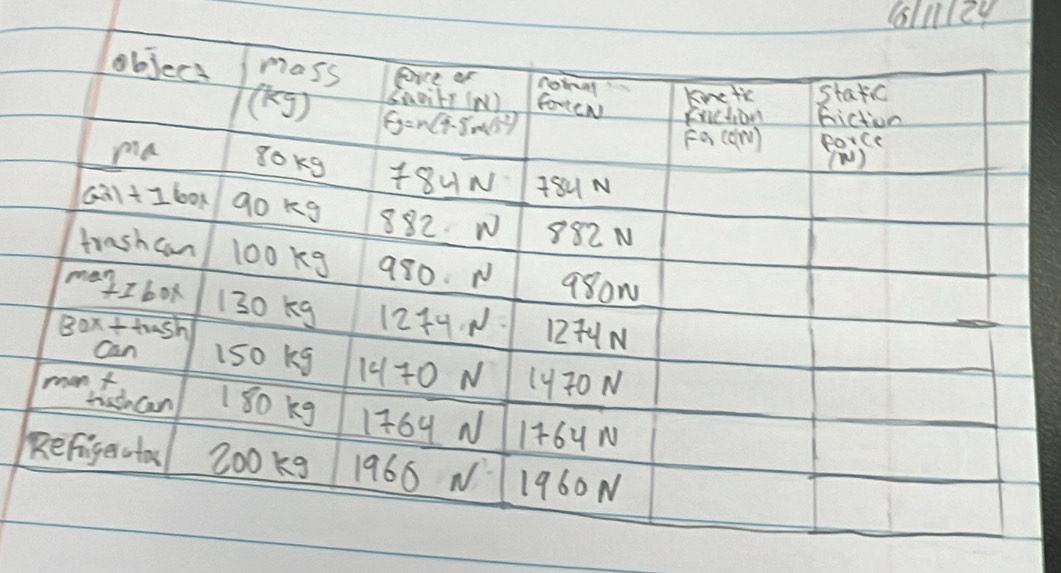 object mass (kg) force of Gravity (N) Fg=m(9.8m/s²) normal force N Kinetic friction Force(N) Static friction Force (N)
ma 80 kg 784 N 784 N
Gal + 1 box 90 kg 882 N 882 N
trash can 100 kg 980. N 980 N
man + 1 box 130 kg 1274 N 1274 N
Box + trash can 150 kg 1470 N 1470 N
man + trash can 180 kg 1764 N 1764 N
Refrigerator 200 kg 1960 N 1960 N